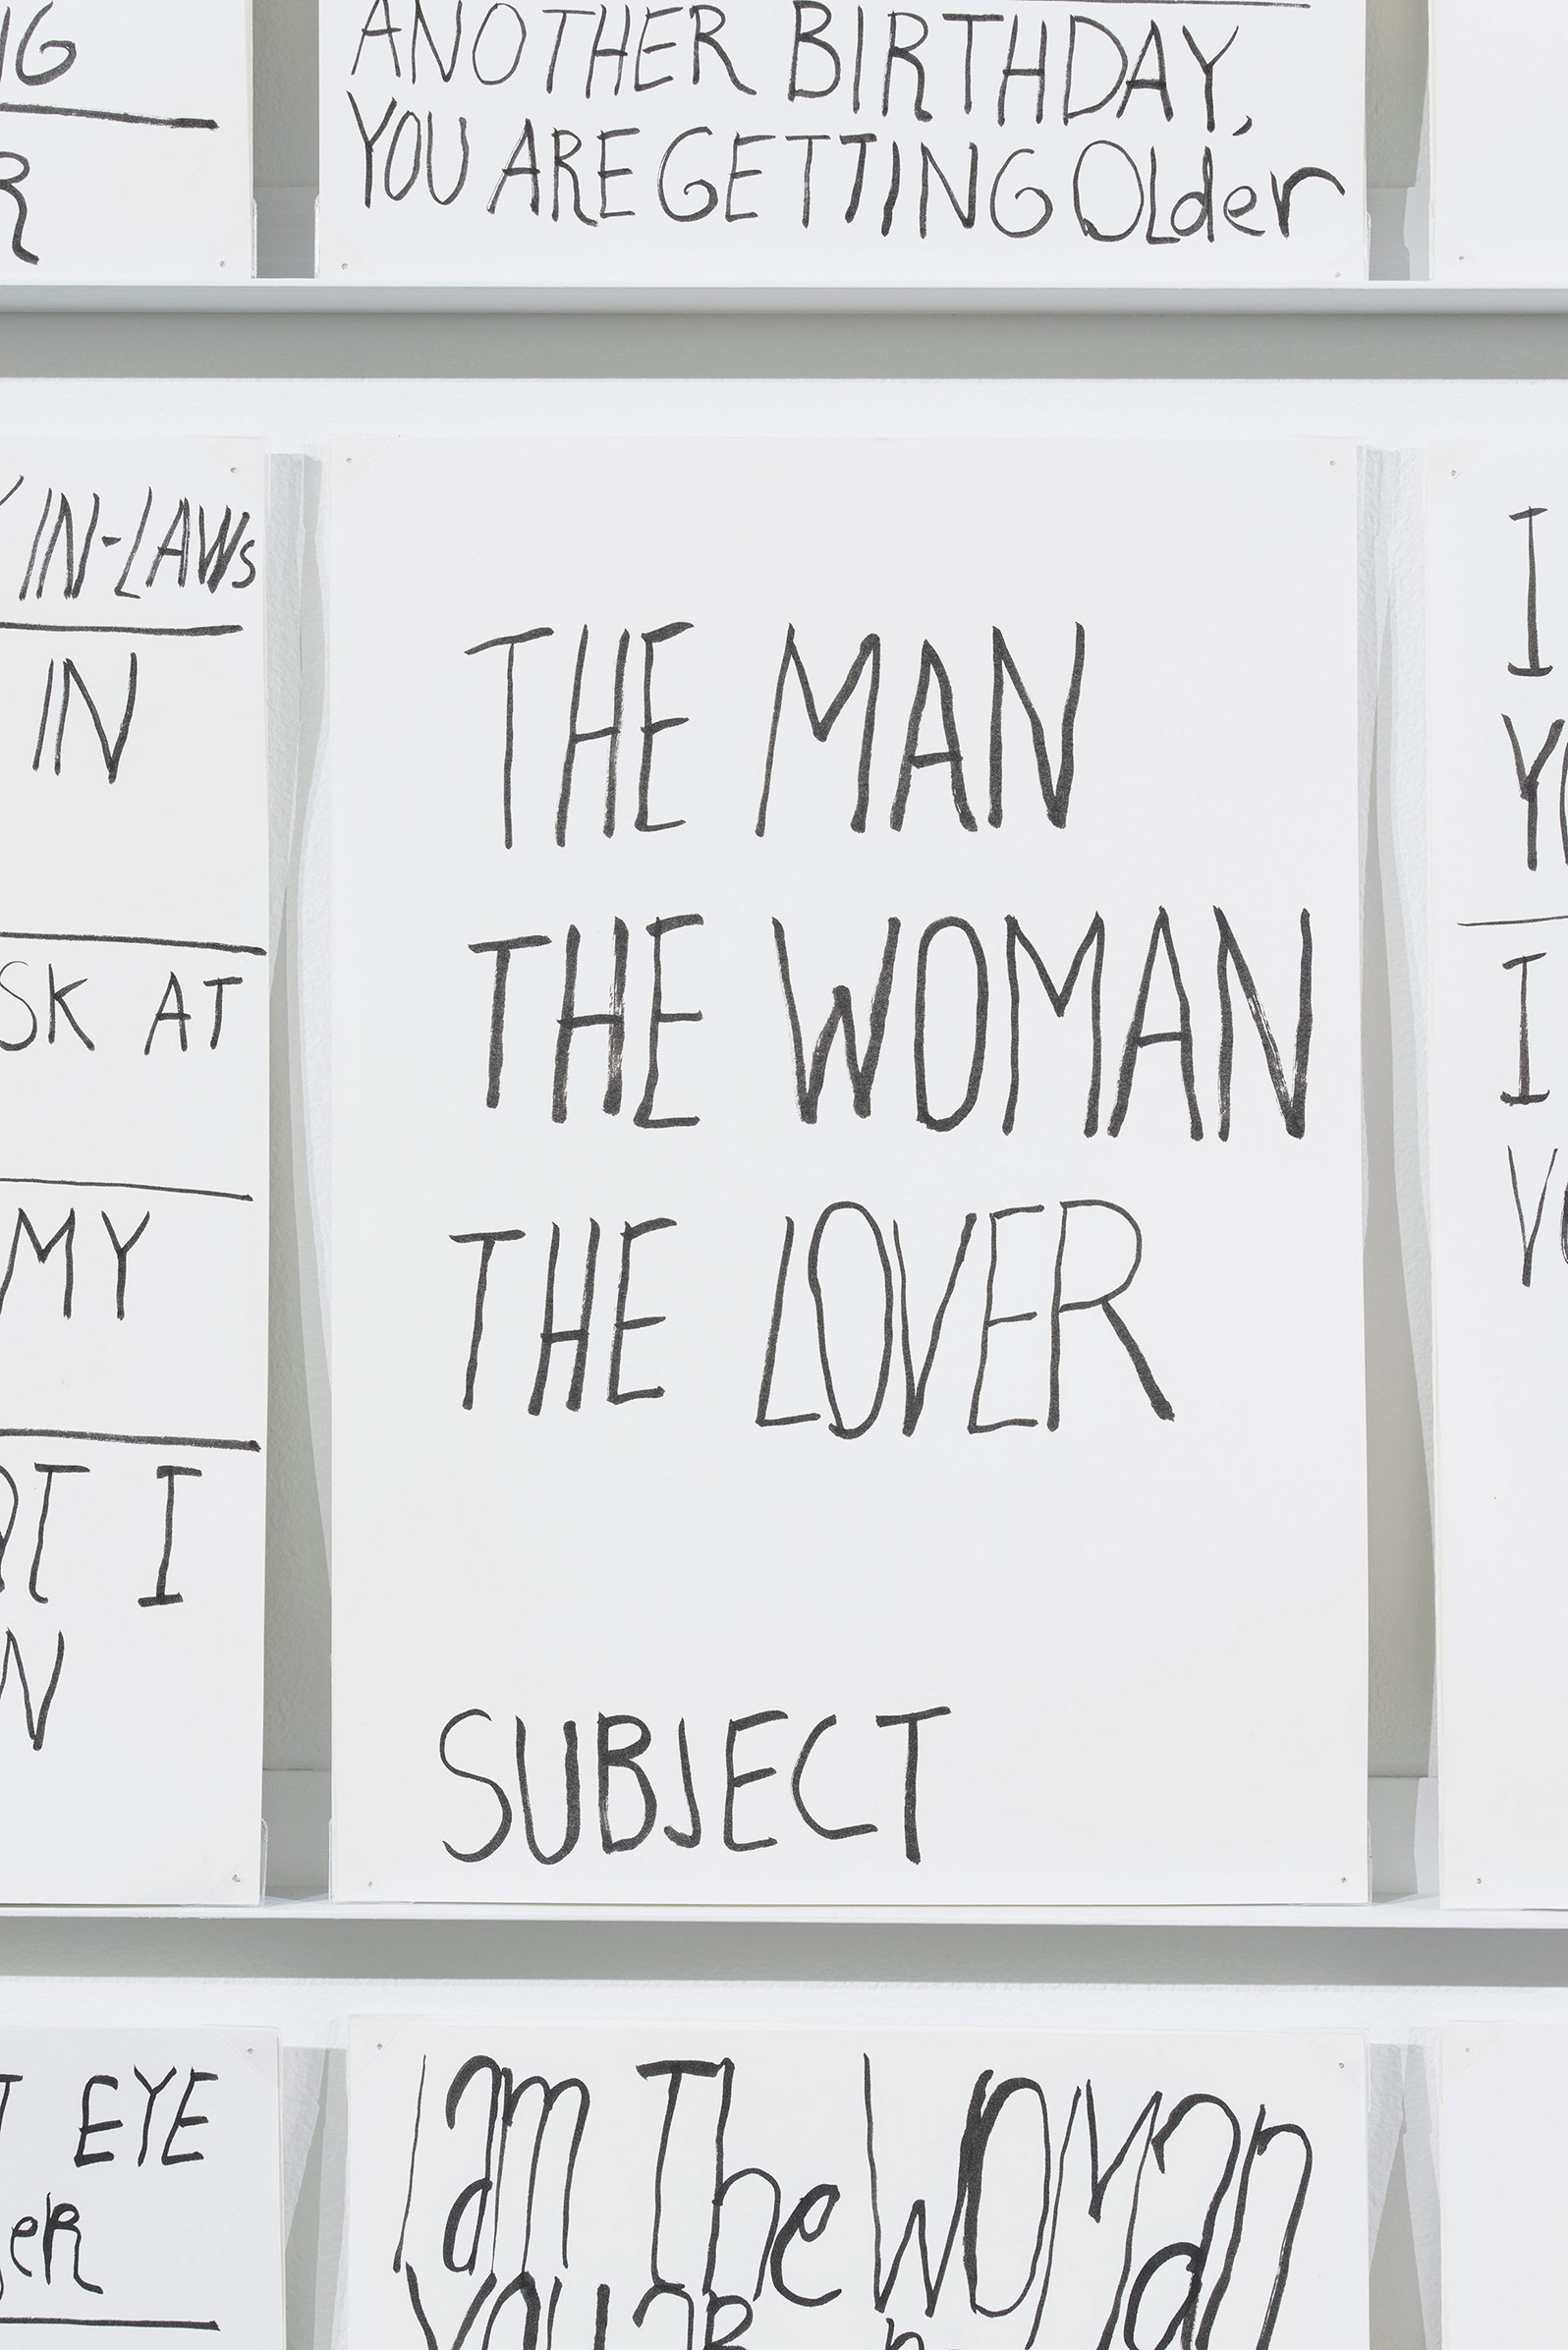 ANOTHER BIRTHDAY,
YOU ARE GETTING OLder
IN-LAWs
IN
AT
MY
I
THE MAN
THE WOMAN
THE LOVER
SUBJECT
I
I
EYE
I am The WOMan